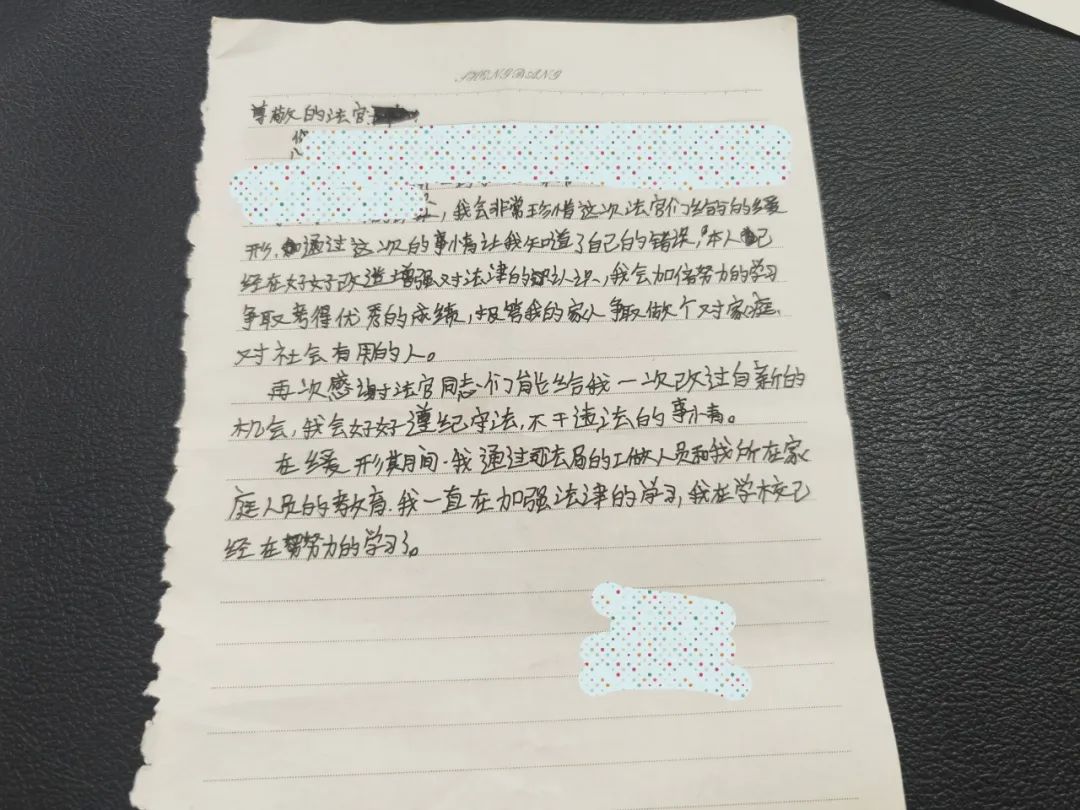 SHENGBANG
尊敬的法官
你
，我会非常珍惜这次法官们给的的缓
形，通过这次的事情让我知道了自己的错误，本人已
经在好好改造增强对法津的认识，我会加倍努力的学习
争取考得优秀的成绩，报答我的家人争取做个对家庭、
对社会有用的人。
再次感谢法官同志们能给我一次改过自新的
机会，我会好好遵纪守法，不干违法的事情。
在缓形期间.我通过司法局的工做人员和我所在家
庭人员的教育.我一直在加强法津的学习，我在学校已
经在努努力的学习了。